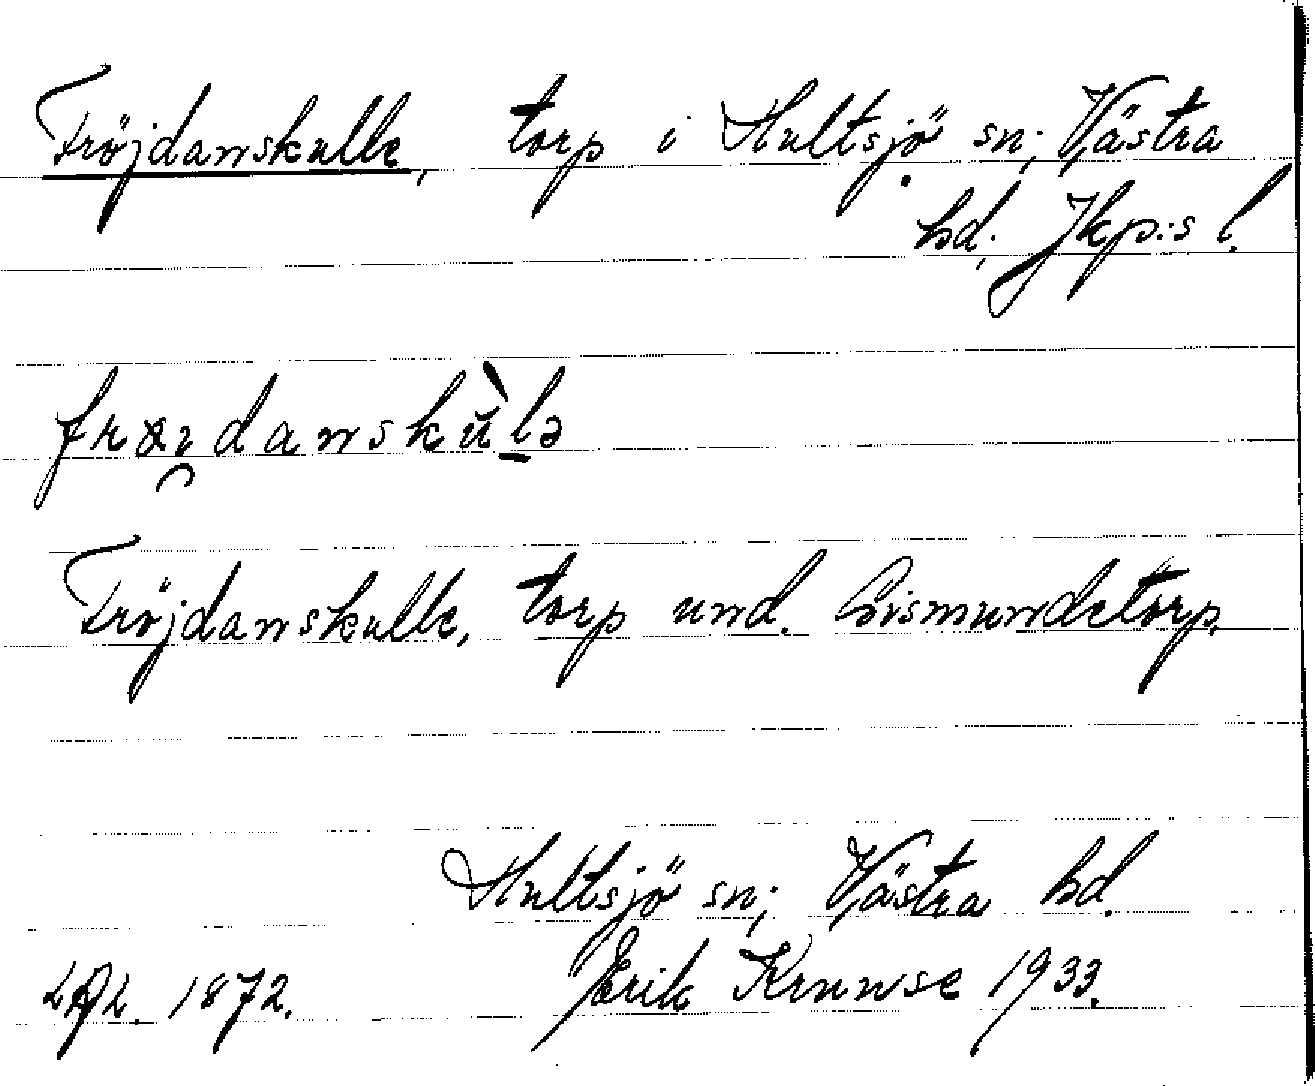 Fröjdanskulle, torp i Hultsjö sn; Västra
hd; Jkp:s l.
frœi̯danskŭ̀lə
Fröjdanskulle, torp und. Gismundetorp.
Hultsjö sn; Västra hd.
1872. Erik Krunse 1933.